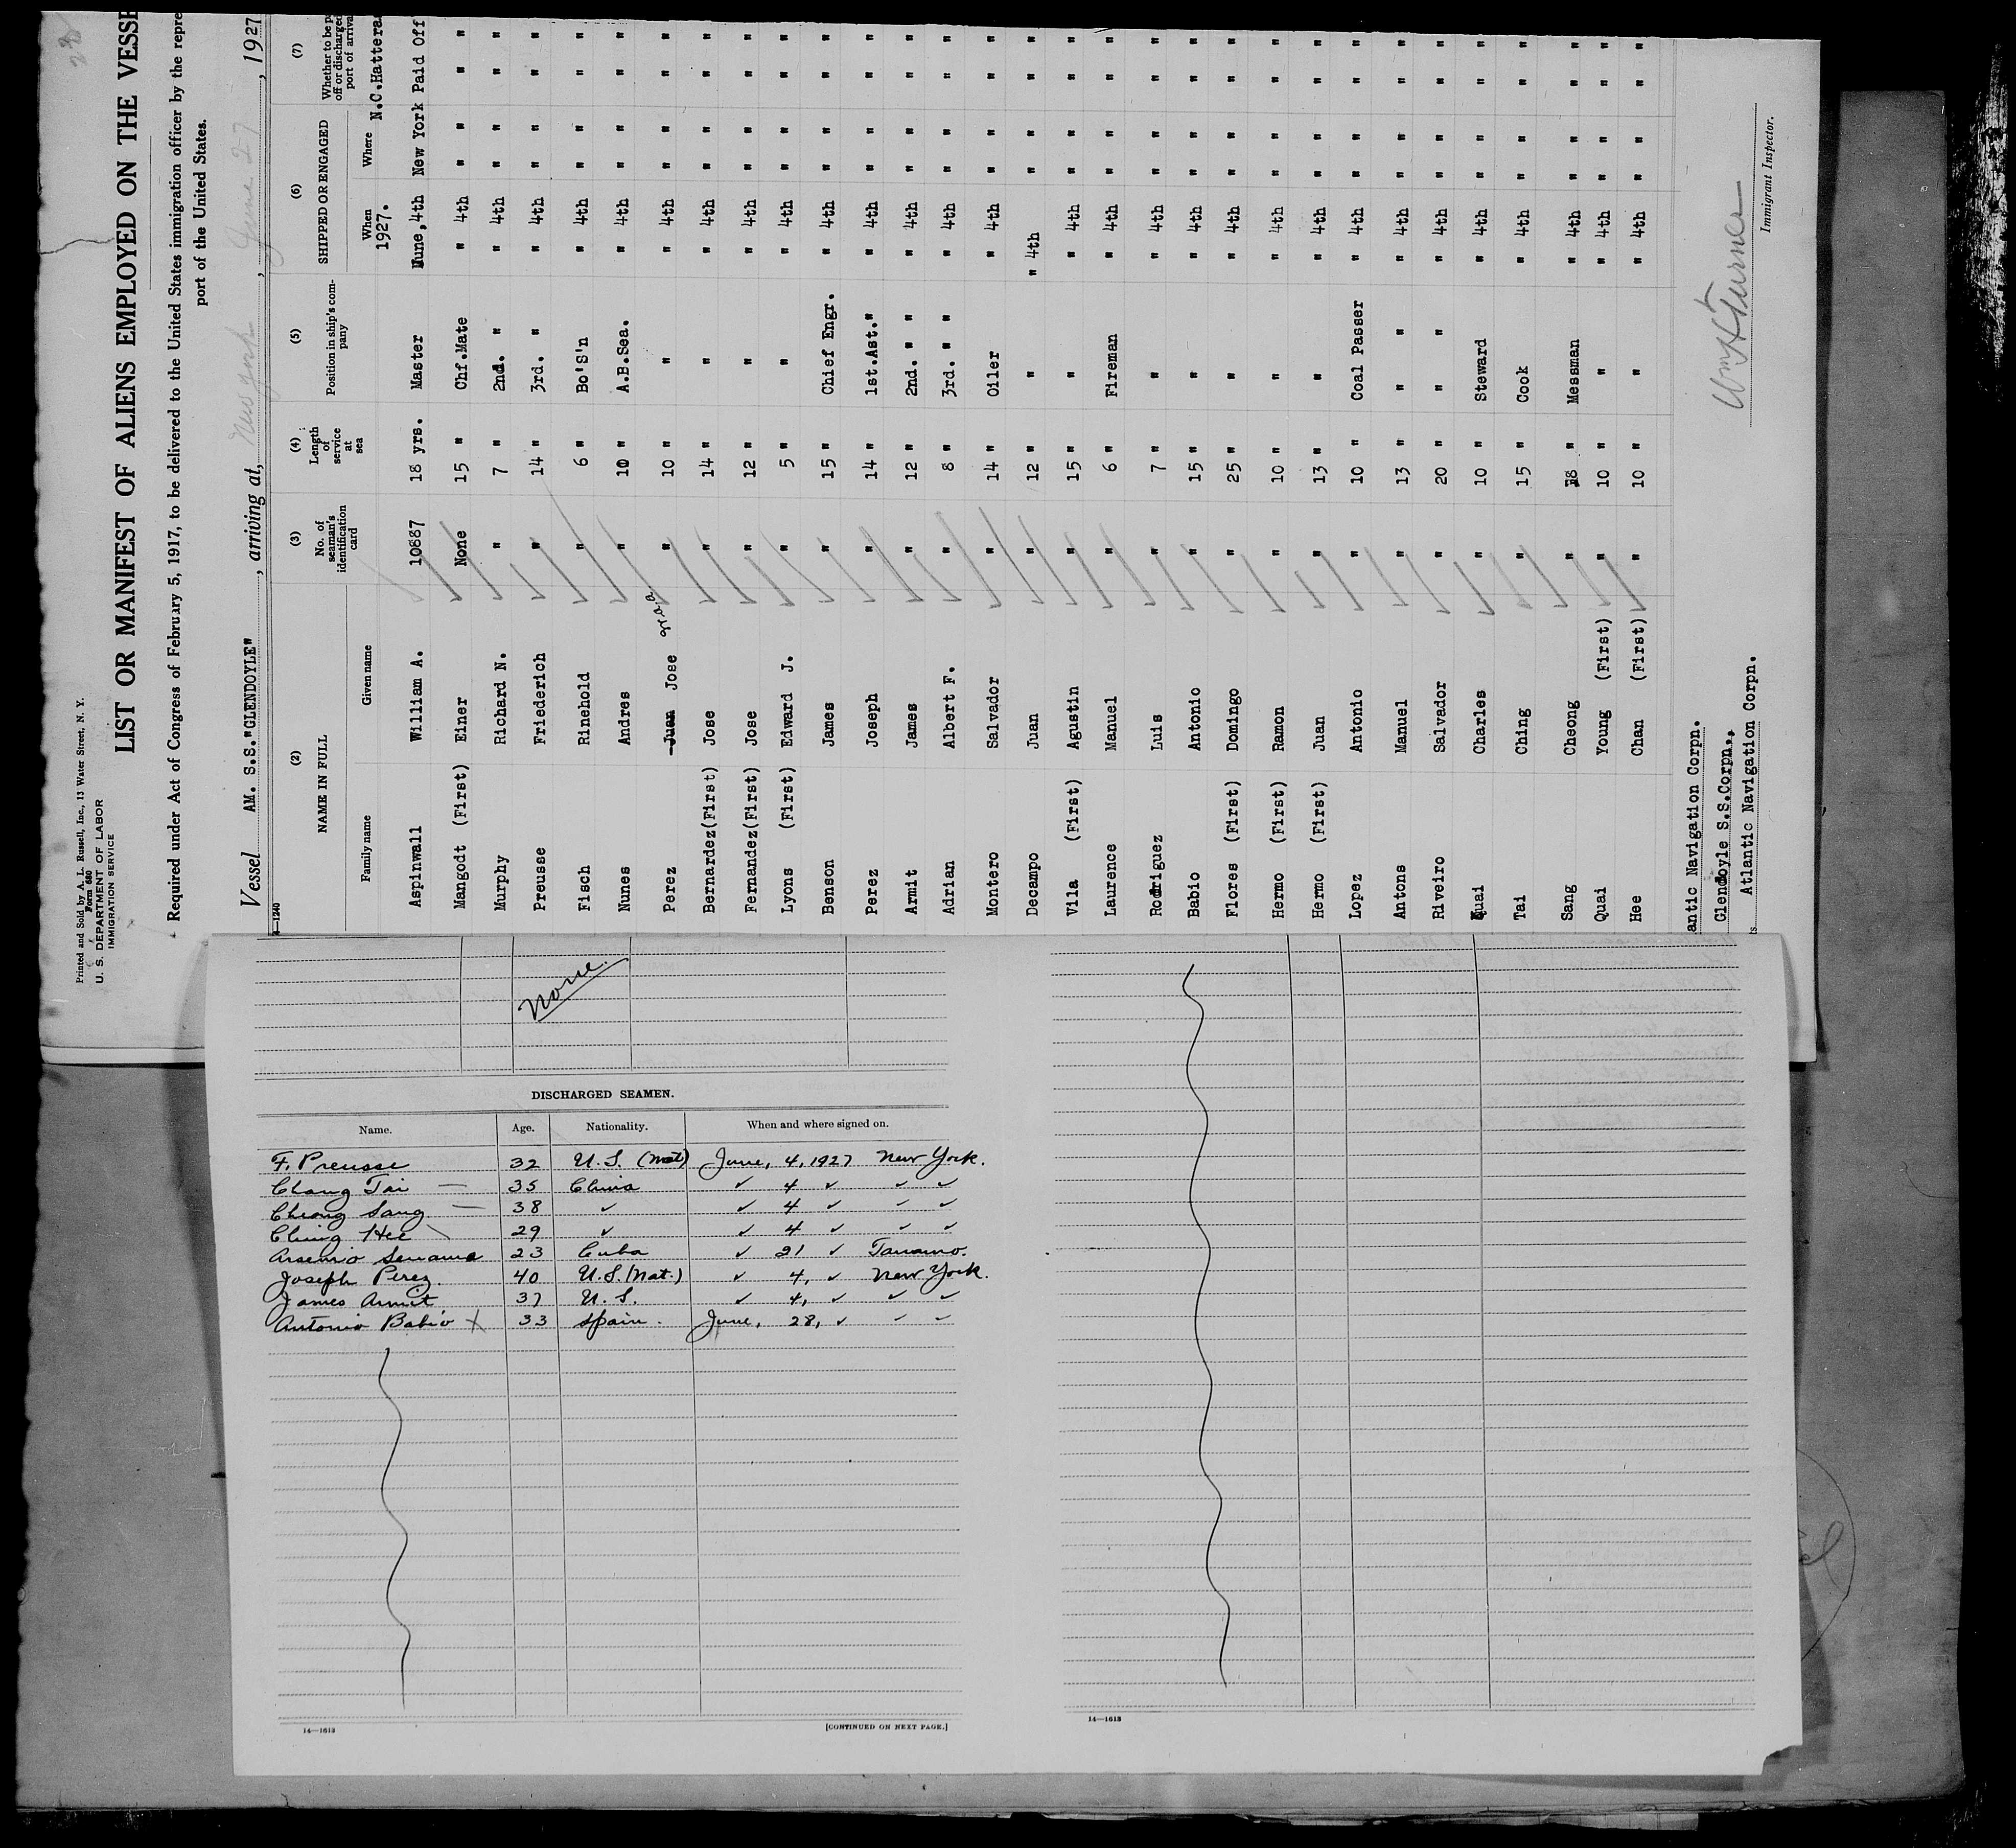 Printed and Sold by A. L. Russell, Inc., 13 Water Street, N. Y.
Form 680
U. S. DEPARTMENT OF LABOR
IMMIGRATION SERVICE
LIST OR MANIFEST OF ALIENS EMPLOYED ON THE VESSE
Required under Act of Congress of February 5, 1917, to be delivered to the United States immigration officer by the repre
port of the United States.
Vessel AM. S.S."GLENDOYLE" , arriving at, New York , June 27 , 1927
(2) (3) (4) (5) (6) (7)
NAME IN FULL No. of seaman's identification card Length of service at sea Position in ship's company SHIPPED OR ENGAGED Whether to be p off or discharged port of arriva
Family name Given name When Where
1927. N.C.Hattera
Aspinwall William A. 10887 18 yrs. Master June,4th New York Paid Off
Mangodt (First) Einer None 15 " Chf.Mate " 4th " " " "
Murphy Richard N. " 7 " 2nd. " " 4th " " " "
Preusse Friederich " 14 " 3rd. " " 4th " " " "
Fisch Rinehold " 6 " Bo'S'n " 4th " " " "
Nunes Andres " 10 " A.B.Sea. " 4th " " " "
Perez Juan Jose " 10 " " " 4th " " " "
Bernardez(First) Jose " 14 " " " 4th " " " "
Fernandez(First) Jose " 12 " " " 4th " " " "
Lyons (First) Edward J. " 5 " " " 4th " " " "
Benson James " 15 " Chief Engr. " 4th " " " "
Perez Joseph " 14 " 1st.Ast." " 4th " " " "
Armit James " 12 " 2nd. " " " 4th " " " "
Adrian Albert F. " 8 " 3rd. " " " 4th " " " "
Montero Salvador " 14 " Oiler " 4th " " " "
Decampo Juan " 12 " " " 4th " " " "
Vila (First) Agustin " 15 " " " 4th " " " "
Laurence Manuel " 6 " Fireman " 4th " " " "
Rodriguez Luis " 7 " " " 4th " " " "
Babio Antonio " 15 " " " 4th " " " "
Flores (First) Domingo " 25 " " " 4th " " " "
Hermo (First) Ramon " 10 " " " 4th " " " "
Hermo (First) Juan " 13 " " " 4th " " " "
Lopez Antonio " 10 " Coal Passer " 4th " " " "
Antons Manuel " 13 " " " " 4th " " " "
Riveiro Salvador " 20 " " " " 4th " " " "
Quai Charles " 10 " Steward " 4th " " " "
Tai Ching " 15 " Cook " 4th " " " "
Sang Cheong " 18 " Messman " 4th " " " "
Quai Young (First) " 10 " " " 4th " " " "
Hee Chan (First) " 10 " " " 4th " " " "
antic Navigation Corpn.
Glendoyle S.S.Corpn.
Atlantic Navigation Corpn.
Wm H Turner
Immigrant Inspector.
None.
DISCHARGED SEAMEN.
Name. Age. Nationality. When and where signed on.
F. Preusse 32 U.S. (Nat) June, 4, 1927 New York.
Chang Tai 35 China ✓ 4 ✓ ✓ ✓
Cheong Sang 38 ✓ ✓ 4 ✓ ✓ ✓
Ching Hee 29 ✓ ✓ 4 ✓ ✓ ✓
Arsenio 23 Cuba ✓ 21 ✓ Tanamo.
Joseph Perez. 40 U.S. (Nat.) ✓ 4, ✓ New York.
James Armit 37 U.S. ✓ 4, ✓ ✓ ✓
Antonio Babio X 33 Spain. June, 28, ✓ ✓ ✓
14—1613 [CONTINUED ON NEXT PAGE.]
14—1613